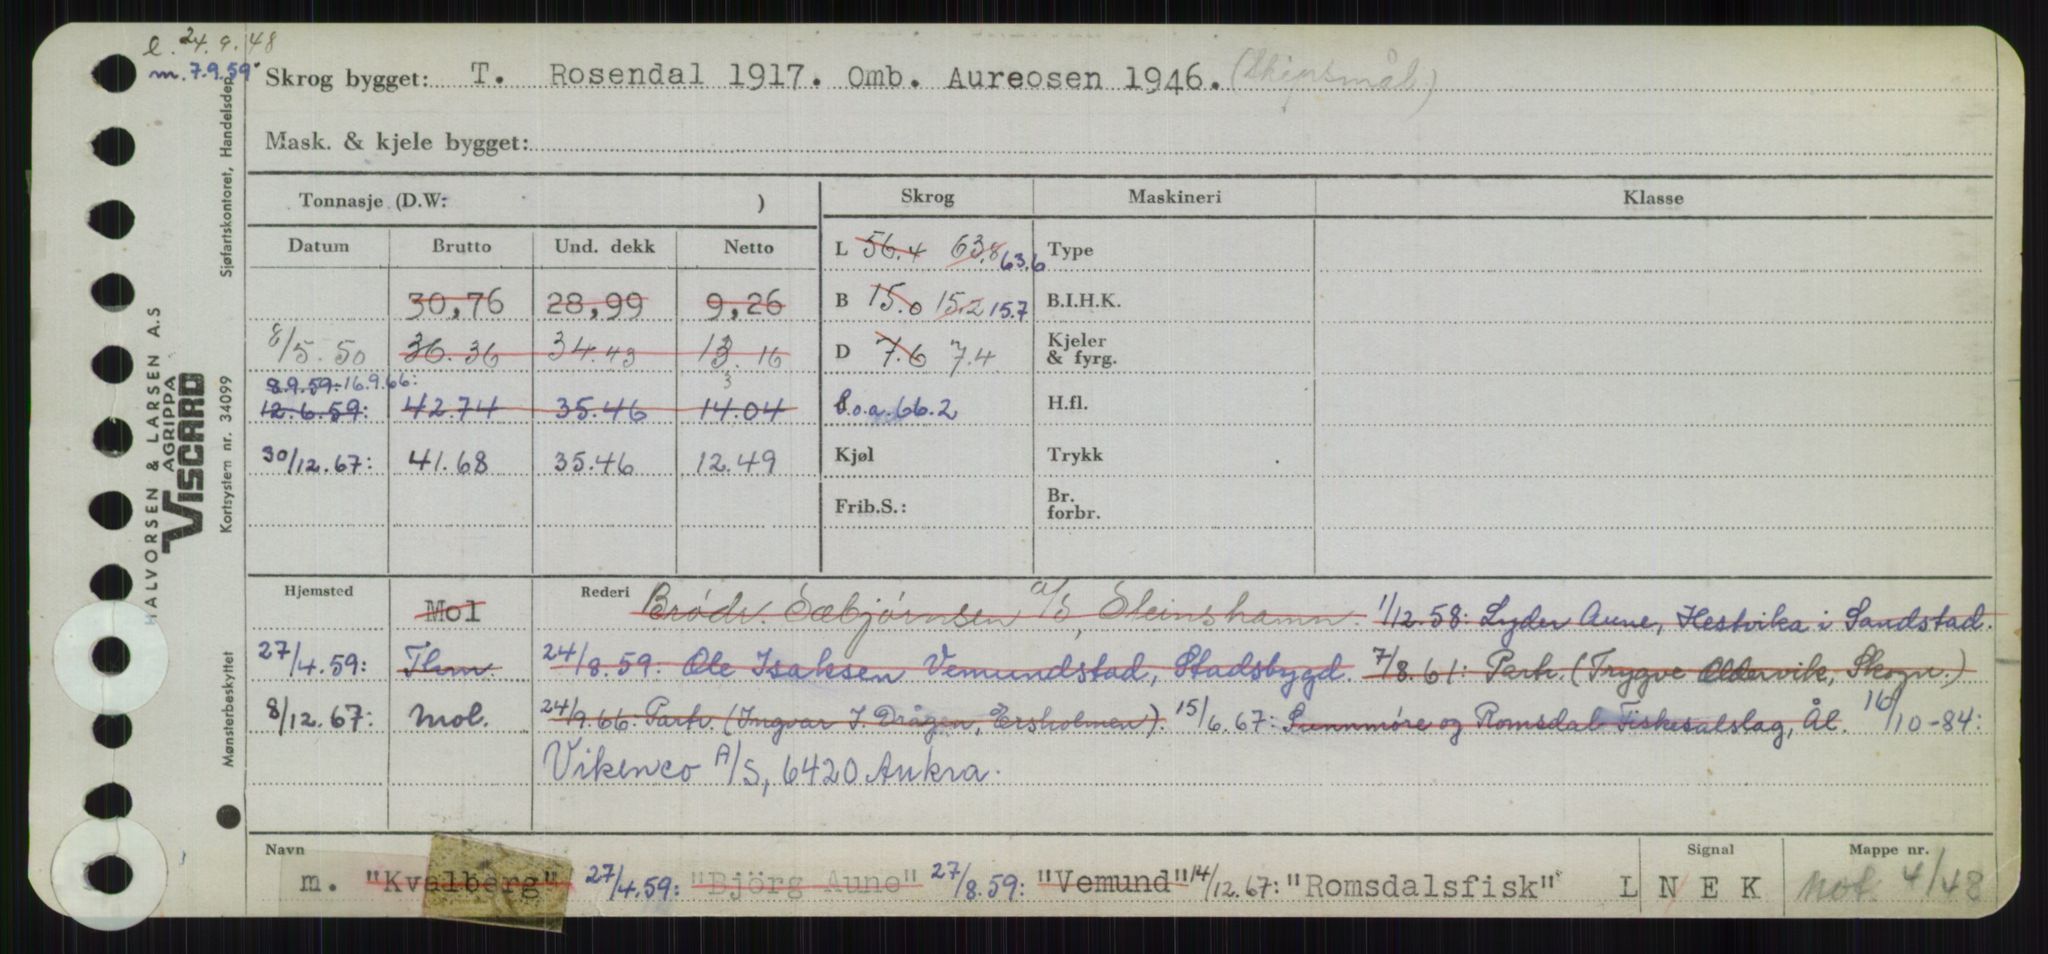 l. 24.9.48
m. 7.9.59.
Skrog bygget: T. Rosendal 1917. Omb. Aureosen 1946. (Skipsmål)
Mask. & kjele bygget:
Tonnasje (D.W: ) Skrog Maskineri Klasse
Datum Brutto Und. dekk Netto
L 56.4 63.8 63.6 Type
30,76 28,99 9,26 B 15.0 15.2 15.7 B.I.H.K.
8/5.50 36.36 34.43 13.16 D 7.6 7.4 Kjeler & fyrg.
3
8.9.59. 16.9.66:
12.6.59: 42.74 35.46 14.04 l.o.a. 66.2 H.fl.
30/12.67: 41.68 35.46 12.49 Kjøl Trykk
Frib.S.: Br. forbr.
Hjemsted Mol Rederi Brødr. Sæbjørnsen a/s, Steinshamn. 1/12.58: Lyder Aune, Hestvika i Sandstad.
27/4.59: Thm. 24/8.59: Ole Isaksen Vemundstad, Stadsbygd. 7/8.61: Partr. (Trygve Oldervik, Skogn.)
8/12.67: Mol. 24/9.66: Partr. (Ingvar J. Drågen, Ersholmen). 15/6.67: Sunnmøre og Romsdal Fiskesalslag, Ål. 16/10-84:
Vikenco A/S, 6420 Aukra.
Navn Signal Mappe nr.
m. "Kvalberg" 27/4.59: "Björg Aune" 27/8.59: "Vemund" 14/12.67: "Romsdalsfisk" L N E K Not. 4/48
HALVORSEN & LARSEN A.S
AGRIPPA
VISCARD
Sjøfartskontoret, Handelsdep.
Kortsystem nr. 34099
Mønsterbeskyttet